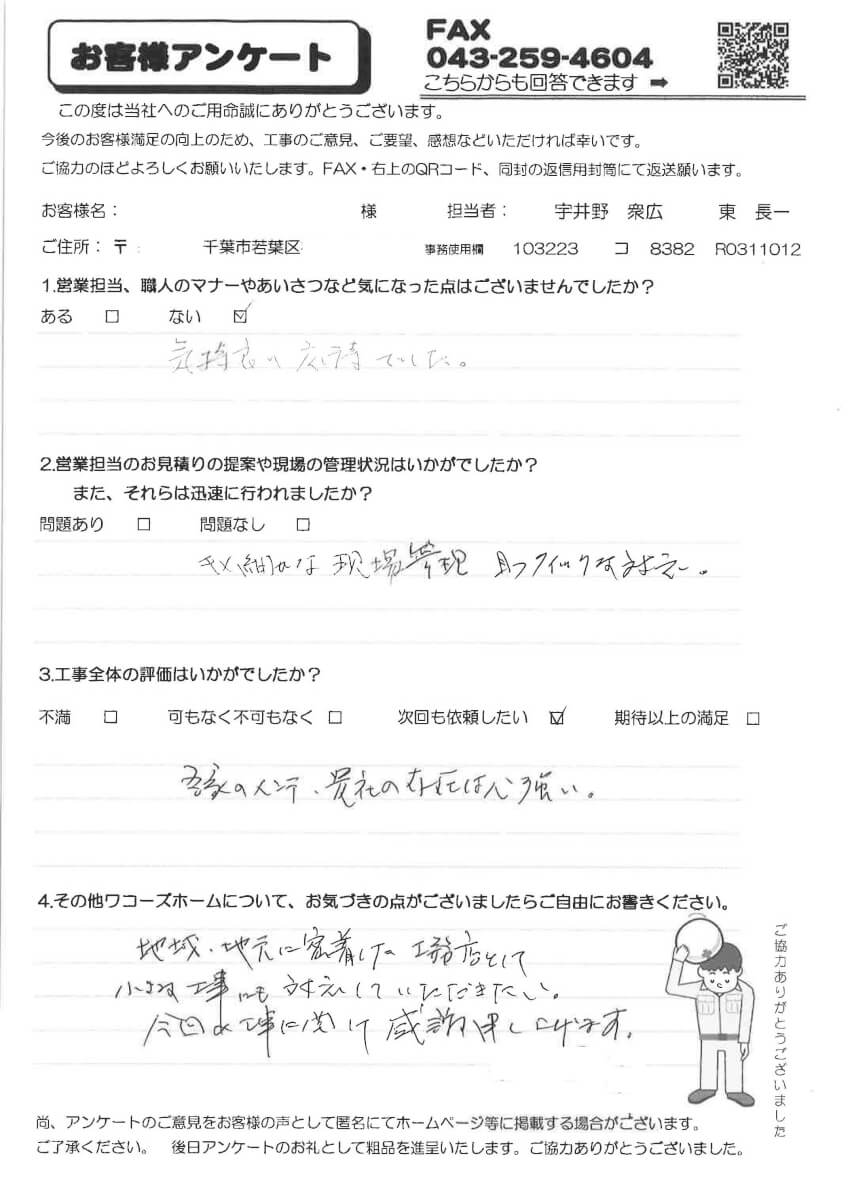 お客様アンケート
FAX
043-259-4604
こちらからも回答できます ➡
この度は当社へのご用命誠にありがとうございます。
今後のお客様満足の向上のため、工事のご意見、ご要望、感想などいただければ幸いです。
ご協力のほどよろしくお願いいたします。FAX・右上のQRコード、同封の返信用封筒にて返送願います。
お客様名： 様 担当者： 宇井野 衆広 東 長一
ご住所：〒 千葉市若葉区 事務使用欄 103223 コ 8382 R0311012
1.営業担当、職人のマナーやあいさつなど気になった点はございませんでしたか？
ある □ ない ☑
気持良い応待でした。
2.営業担当のお見積りの提案や現場の管理状況はいかがでしたか？
また、それらは迅速に行われましたか？
問題あり □ 問題なし □
きめ細かな現場管理 且つクイックな対応。
3.工事全体の評価はいかがでしたか？
不満 □ 可もなく不可もなく □ 次回も依頼したい ☑ 期待以上の満足 □
吾家のメンテ、貴社の存在は心強い。
4.その他ワコーズホームについて、お気づきの点がございましたらご自由にお書きください。
地域、地元に密着した工務店として
小さな工事にも対応していただきたい。
今回の工事に関して感謝申し上げます。
ご協力ありがとうございました
尚、アンケートのご意見をお客様の声として匿名にてホームページ等に掲載する場合がございます。
ご了承ください。 後日アンケートのお礼として粗品を進呈いたします。ご協力ありがとうございました。